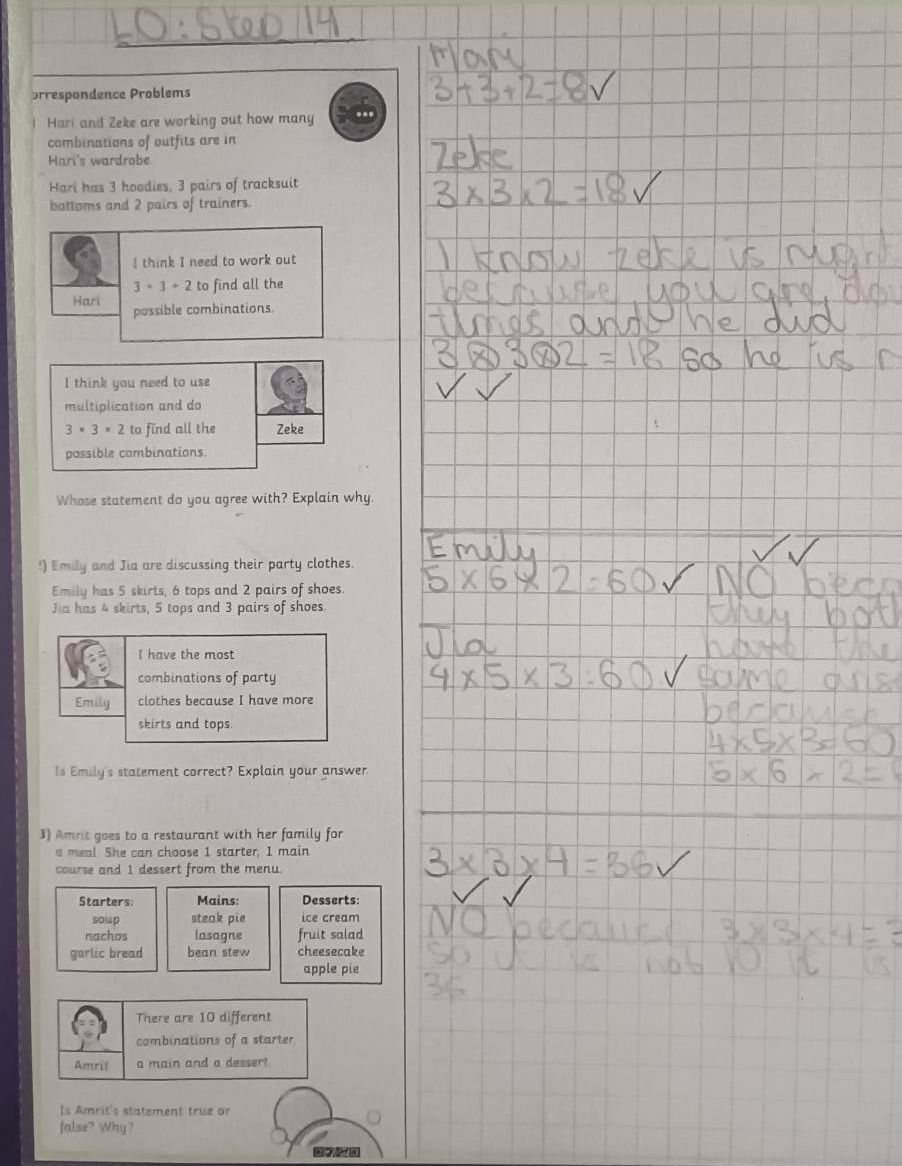 LO: Step 14
orrespondence Problems
Hari and Zeke are working out how many
combinations of outfits are in
Hari's wardrobe.
Hari has 3 hoodies, 3 pairs of tracksuit
bottoms and 2 pairs of trainers.
I think I need to work out
3 + 3 + 2 to find all the
possible combinations.
Hari
I think you need to use
multiplication and do
3 × 3 × 2 to find all the
possible combinations.
Zeke
Whose statement do you agree with? Explain why.
2) Emily and Jia are discussing their party clothes.
Emily has 5 skirts, 6 tops and 2 pairs of shoes.
Jia has 4 skirts, 5 tops and 3 pairs of shoes.
I have the most
combinations of party
clothes because I have more
skirts and tops.
Emily
Is Emily's statement correct? Explain your answer.
3) Amrit goes to a restaurant with her family for
a meal. She can choose 1 starter, 1 main
course and 1 dessert from the menu.
Starters:
soup
nachos
garlic bread
Mains:
steak pie
lasagne
bean stew
Desserts:
ice cream
fruit salad
cheesecake
apple pie
There are 10 different
combinations of a starter,
a main and a dessert.
Amrit
Is Amrit's statement true or
false? Why?
Hari
3+3+2=8✓
Zeke
3×3×2=18✓
I know zeke is
because you are
times and he did
3×3×2=18 so he is
✓✓
Emily
5×6×2=60✓
Jia
4×5×3=60✓
✓✓
NO
they
have the
same
because
4×5×3=60
5×6×2=
3×3×4=36✓
✓✓
NO because 3×3×4=
so it is not 10 it is
36